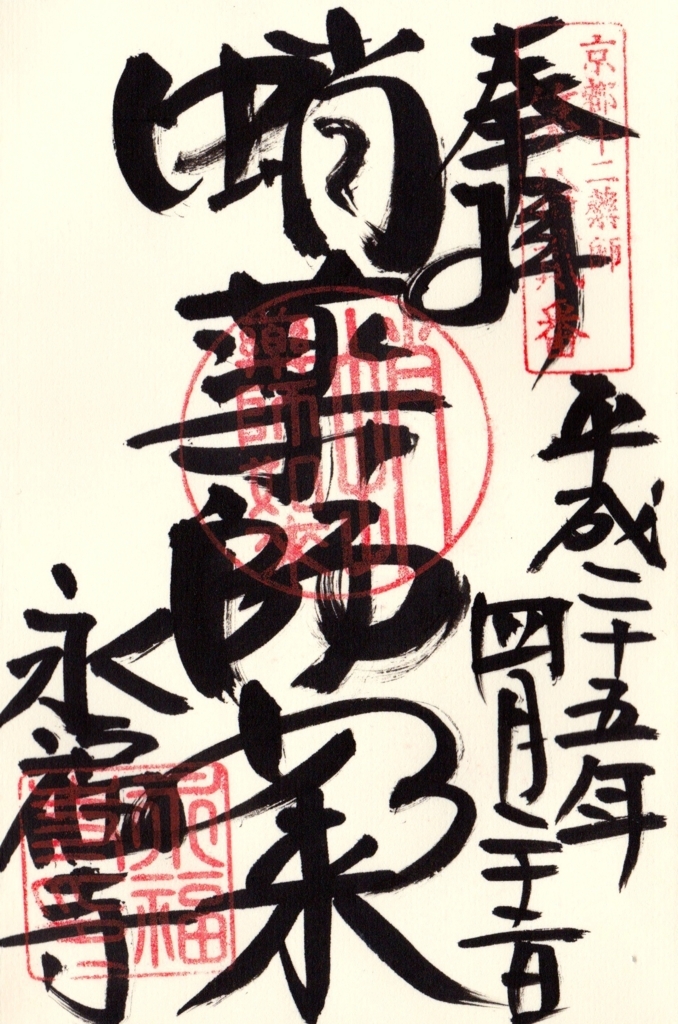 京都十二薬師
第拾弐番
奉拝
平成二十五年
四月二十日
蛸薬師如来
蛸
薬師如来
永福寺
永福